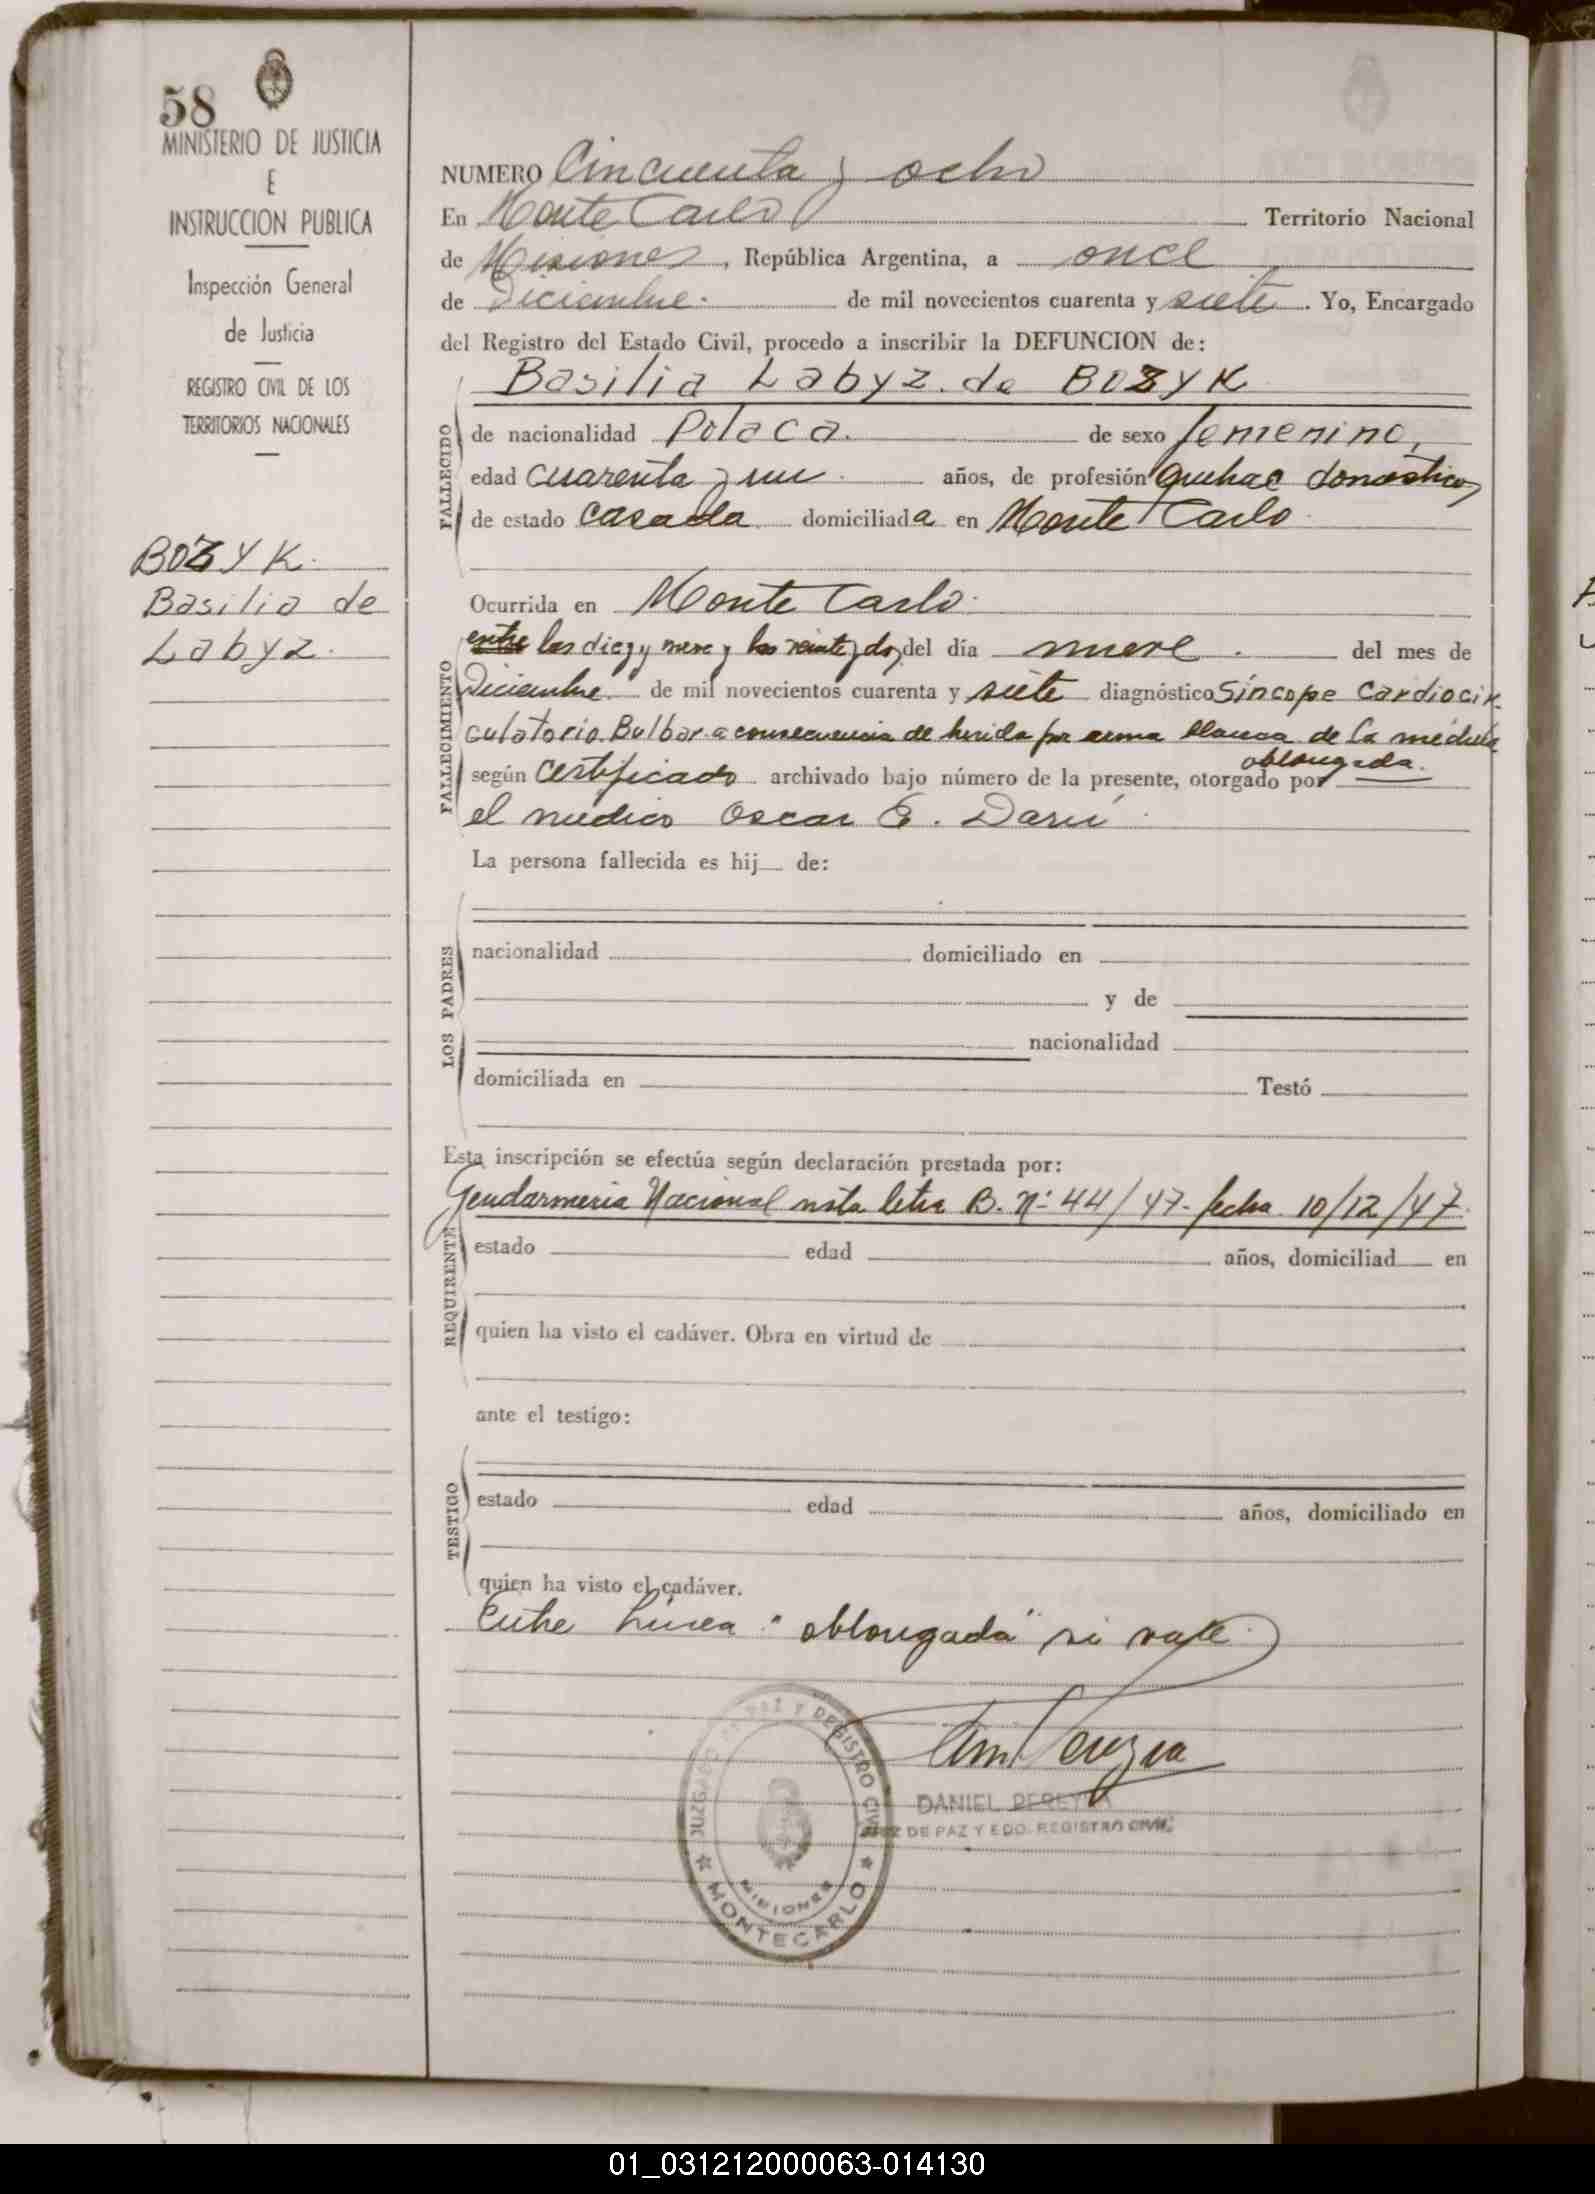 58
MINISTERIO DE JUSTICIA
E
INSTRUCCION PUBLICA
Inspección General
de Justicia
REGISTRO CIVIL DE LOS
TERRITORIOS NACIONALES
BOZYK.
Basilia de
Labyz.
NUMERO Cincuenta y ocho
En Monte Carlo Territorio Nacional
de Misiones, República Argentina, a once
de Diciembre. de mil novecientos cuarenta y siete. Yo, Encargado
del Registro del Estado Civil, procedo a inscribir la DEFUNCION de:
Basilia Labyz. de BOZYK
FALLECIDO
de nacionalidad Polaca. de sexo femenino,
edad cuarenta y un años, de profesión quehac domésticos
de estado casada domiciliada en Monte Carlo.
FALLECIMIENTO
Ocurrida en Monte Carlo.
entre las diez y nueve y las veinte y dos, del día nueve. del mes de
Diciembre de mil novecientos cuarenta y siete diagnóstico Síncope Cardiocir-
culatorio Bulbar a consecuencia de herida por arma blanca de la médula
oblongada.
según certificado archivado bajo número de la presente, otorgado por
el médico Oscar E.
La persona fallecida es hij de:
LOS PADRES
nacionalidad domiciliado en
y de
nacionalidad
domiciliada en Testó
Esta inscripción se efectúa según declaración prestada por:
Gendarmeria Nacional nota letra B. Nº 44/47- fecha 10/12/47.
REQUIRENTE
estado edad años, domiciliad en
quien ha visto el cadáver. Obra en virtud de
ante el testigo:
TESTIGO
estado edad años, domiciliado en
quien ha visto el cadáver.
Entre Linea "oblongada" si vale.
JUZGADO DE PAZ Y REGISTRO CIVIL
MISIONES
MONTECARLO
DANIEL PEREYRA
JUEZ DE PAZ Y EDO. REGISTRO CIVIL
01_031212000063-014130